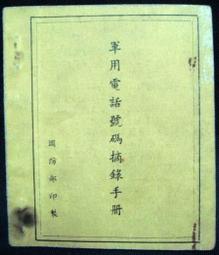 軍用電話號碼摘錄手冊
國防部印製